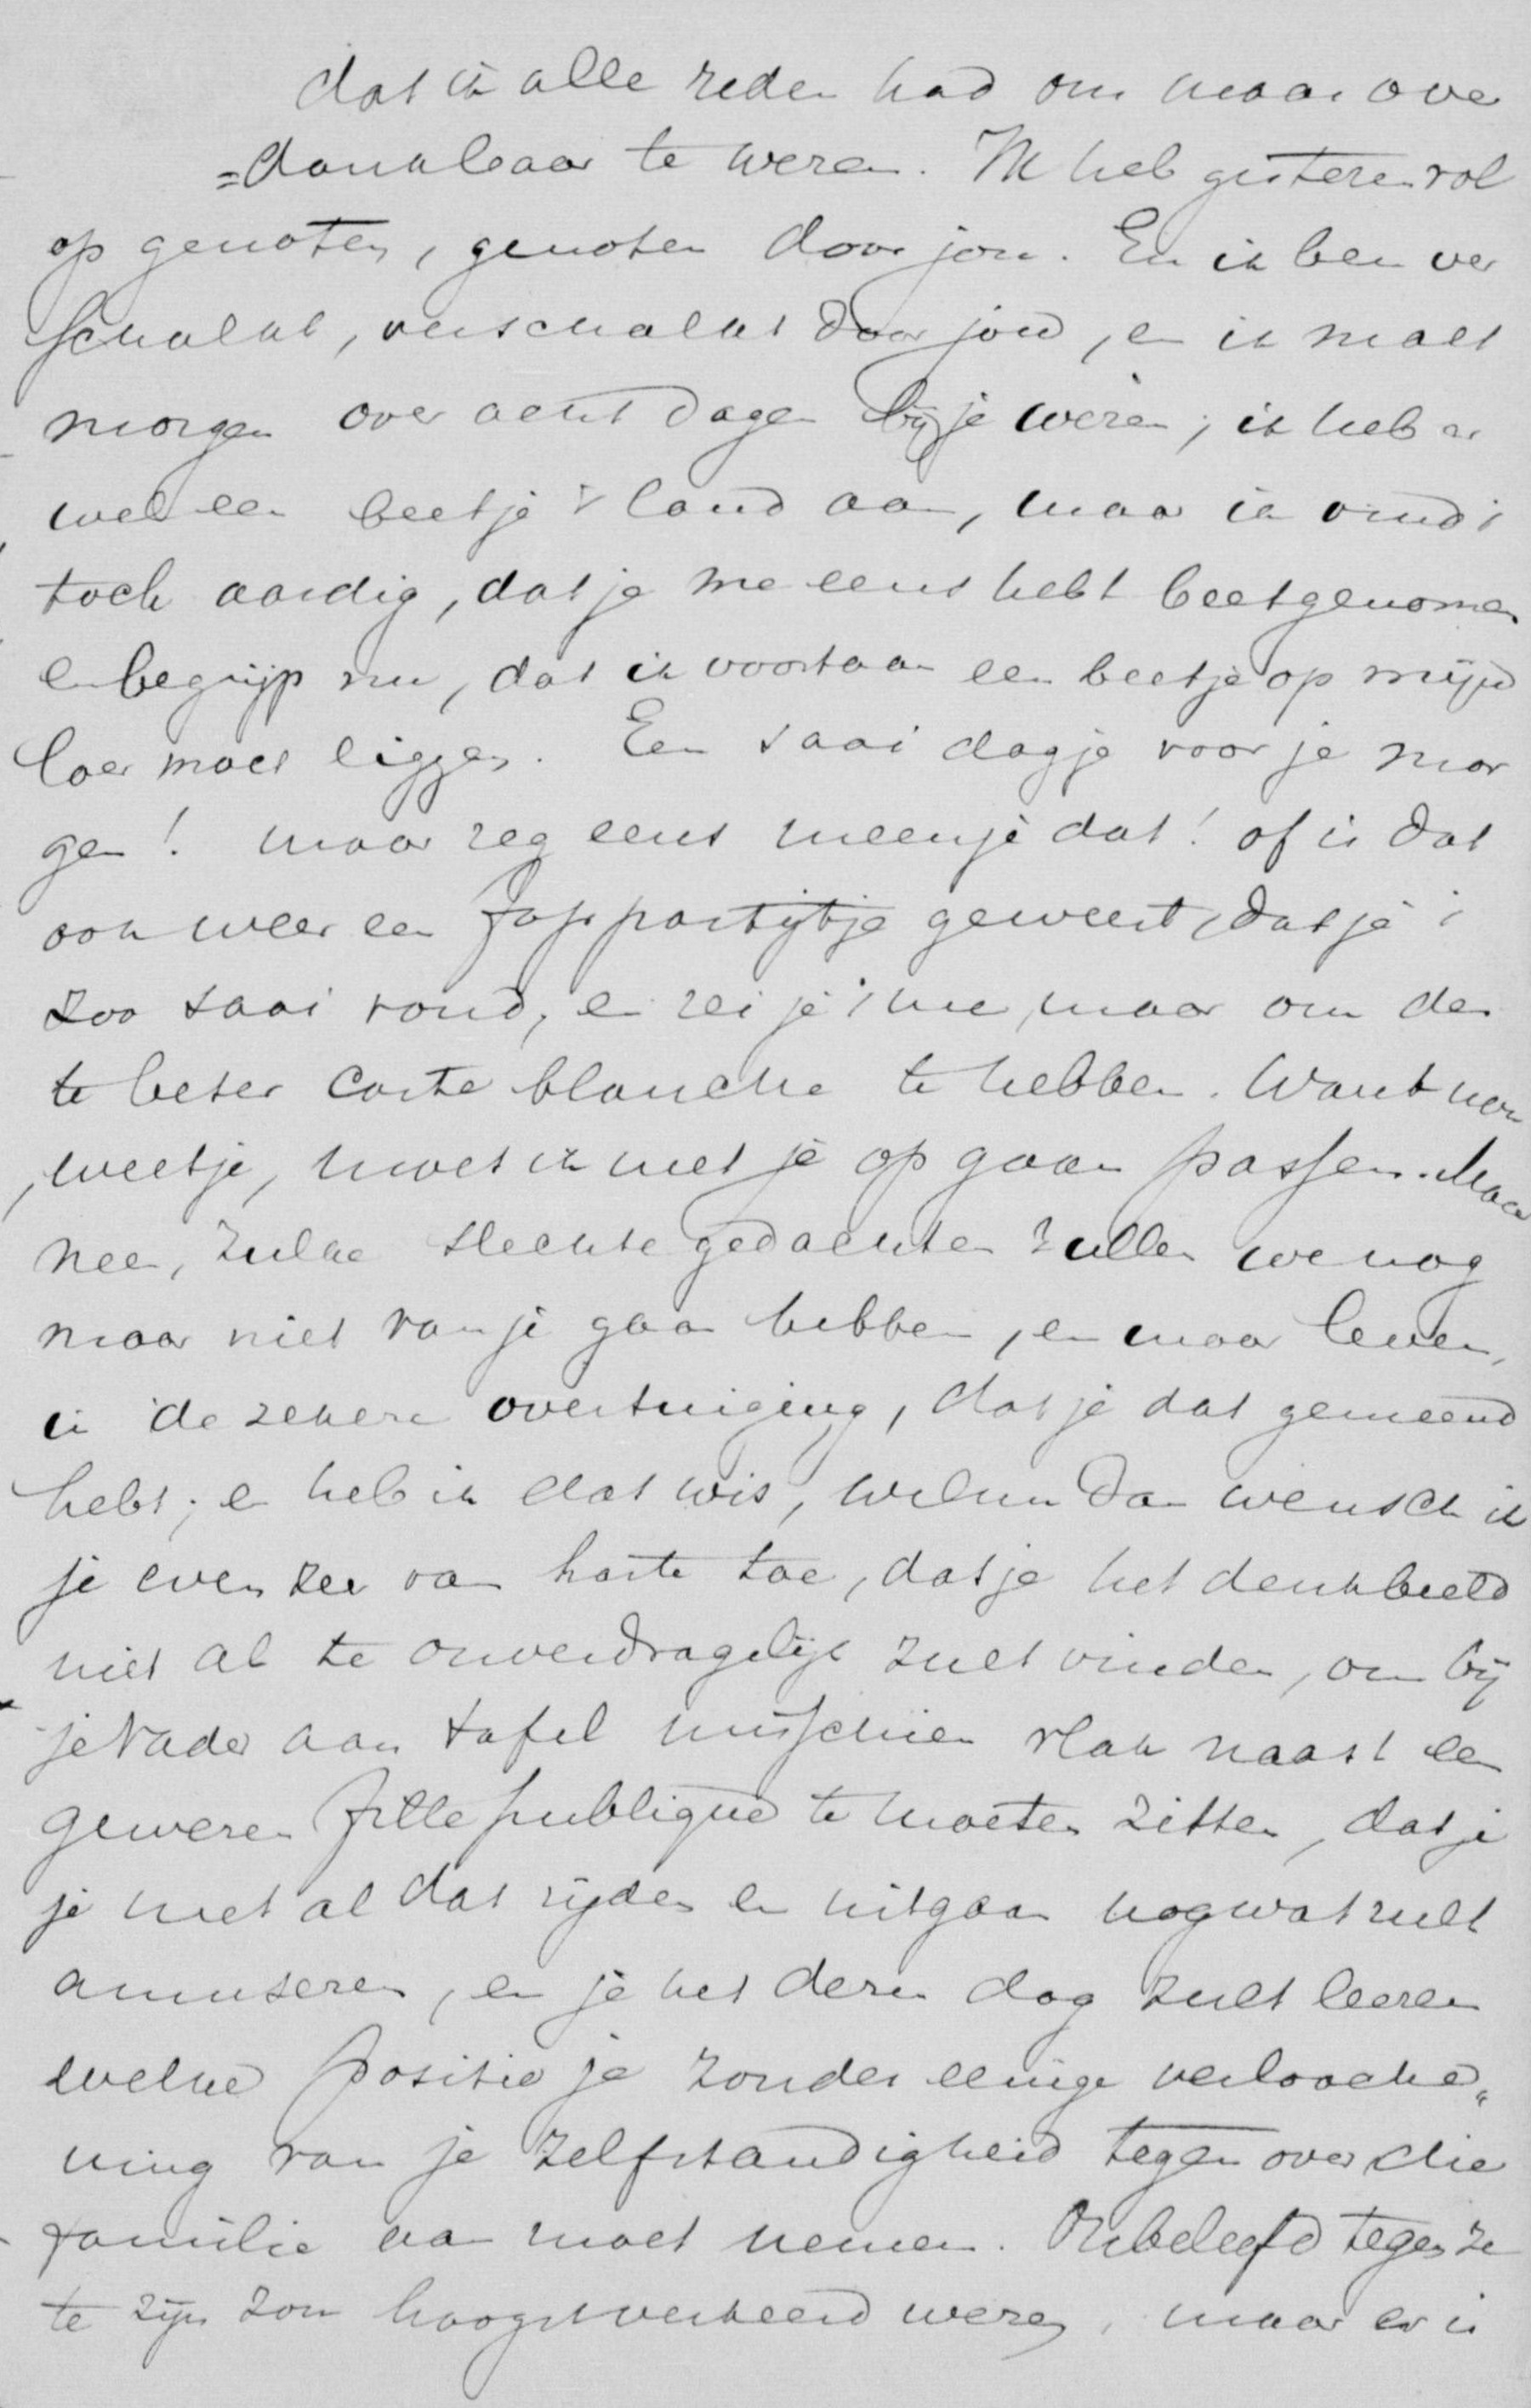 dat ik alle reden had om maar over
=dankbaar te wezen. Ik heb gisteren vol
op genoten, genoten door jou. En ik ben ver
schalkt, verschalkt door jou, en ik moet
morgen over acht dagen bij je wezen; ik heb er
wel een beetje 't land aan, maar ik vind 't
toch aardig, dat je me eens hebt beetgenomen
en begrijp nu, dat ik voortaan een beetje op mijn
loer moet liggen. Een saai dagje voor je mor
gen! maar zeg eens meen je dat! of is dat
ook weer een foppartijtje geweest, dat je 't
zoo saai vond, en zei je 't me, maar om des
te beter carte blanche te hebben. Want nou
weet je, moet ik met je op gaan passen. Maar
nee, zulke slechte gedachten zullen we nog
maar niet van je gaan hebben, en maar leven,
in de zekere overtuiging, dat je dat gemeend
hebt; en heb ik dat wis, welnu dan wensch ik
je even zeer van harte toe, dat je het denkbeeld
niet al te onverdragelijk zult vinden, om bij
je Vader aan tafel misschien vlak naast een
gewezen fille publique te moeten zitten, dat je
je met al dat rijden en uitgaan nog wat zult
amuseren, en je het dezen dag zult leeren
welke positie je zonder eenige verlooche„
ning van je zelfstandigheid tegenover die
familie aan moet nemen. Onbeleefd tegen ze
te zijn zou hoogst verkeerd wezen, maar er is